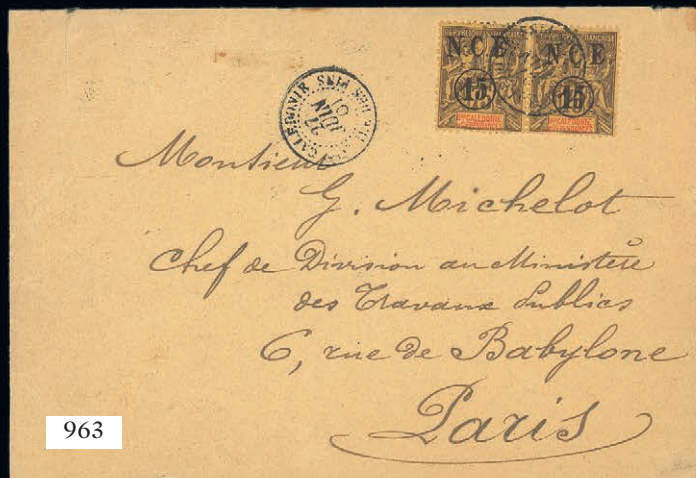 N.C.E N.C.E
15 15
CALÉDONIE
27
JUIN
01
Monsieur
G. Michelot
Chef de Division au Ministère
des Travaux Publics
6, rue de Babylone
Paris
963